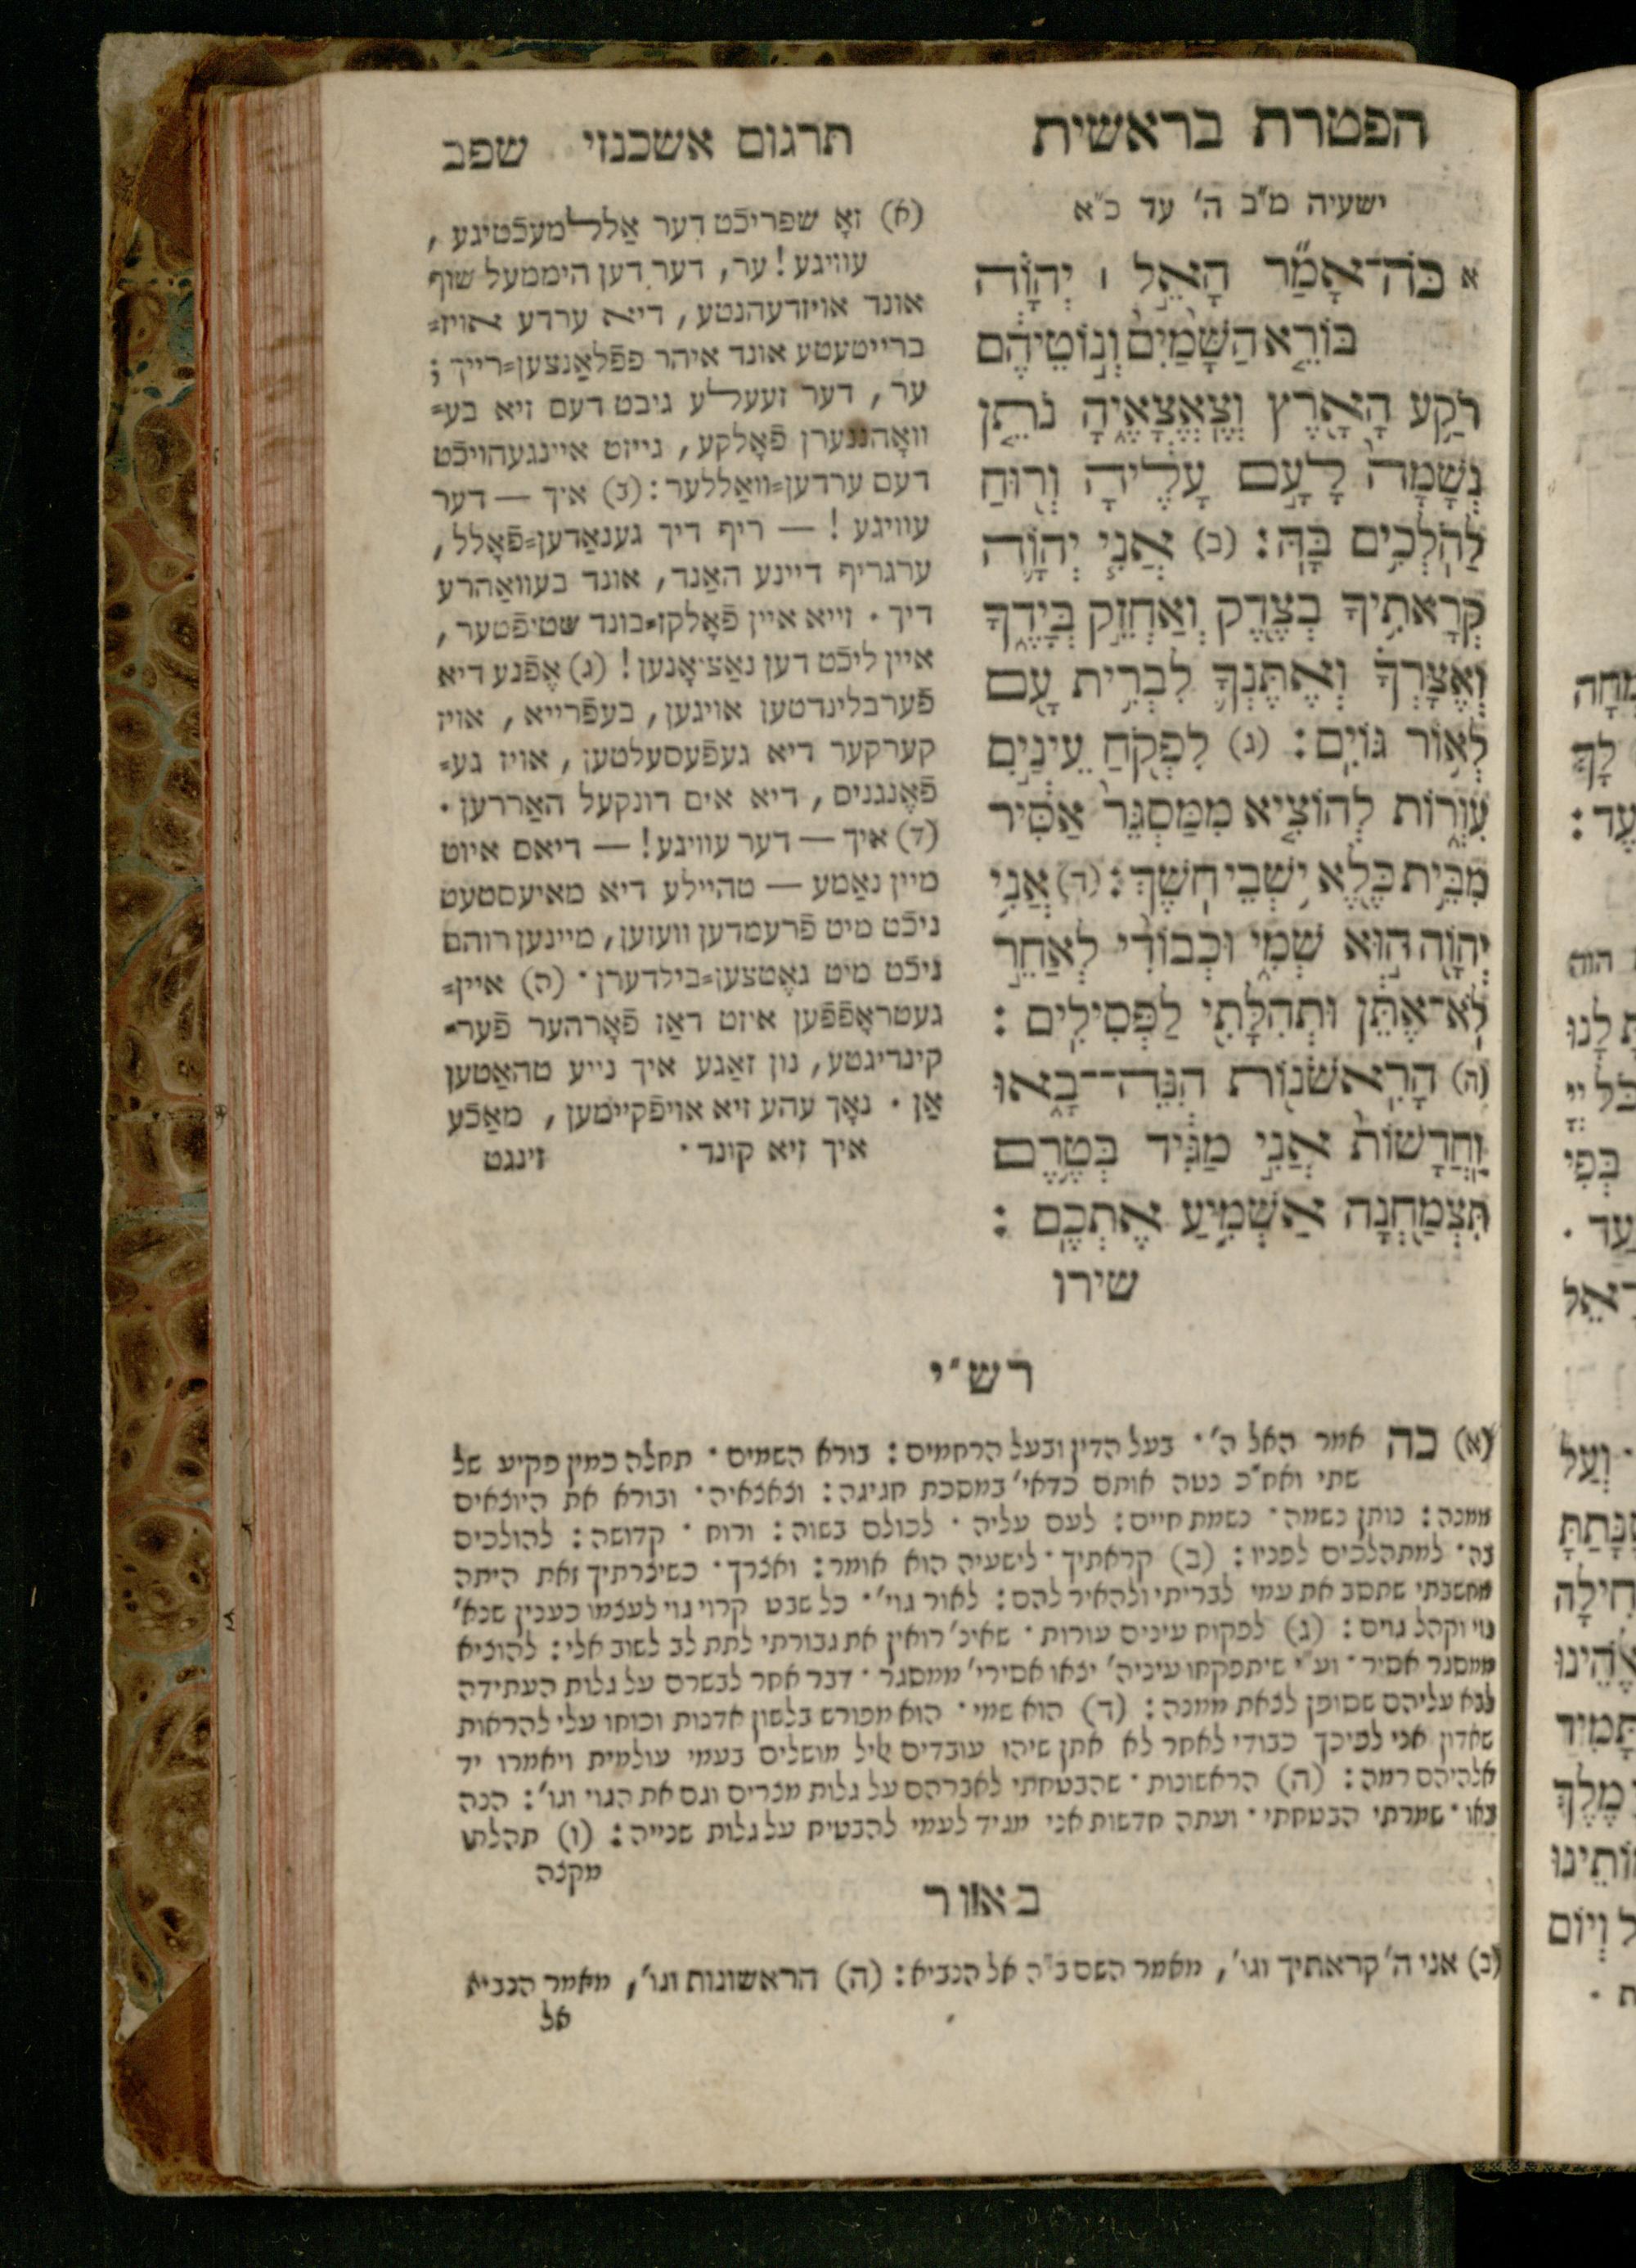 הפטרת בראשית
תרגום אשכנזי שפב
ישעיה מ"ב ה' עד כ"א
א כֹּה־אָמַר הָאֵל ׀ יְהוָה
בּוֹרֵא הַשָּׁמַיִם וְנוֹטֵיהֶם
רֹקַע הָאָרֶץ וְצֶאֱצָאֶיהָ נֹתֵן
נְשָׁמָה לָעָם עָלֶיהָ וְרוּחַ
לַהֹלְכִים בָּהּ׃ (ב) אֲנִי יְהוָה
קְרָאתִיךָ בְצֶדֶק וְאַחְזֵק בְּיָדֶךָ
וְאֶצָּרְךָ וְאֶתֶּנְךָ לִבְרִית עָם
לְאוֹר גּוֹיִם׃ (ג) לִפְקֹחַ עֵינַיִם
עִוְרוֹת לְהוֹצִיא מִמַּסְגֵּר אַסִּיר
מִבֵּית כֶּלֶא יֹשְׁבֵי חֹשֶׁךְ׃ (ד) אֲנִי
יְהוָה הוּא שְׁמִי וּכְבוֹדִי לְאַחֵר
לֹא־אֶתֵּן וּתְהִלָּתִי לַפְּסִילִים׃
(ה) הָרִאשֹׁנוֹת הִנֵּה־בָאוּ
וַחֲדָשׁוֹת אֲנִי מַגִּיד בְּטֶרֶם
תִּצְמַחְנָה אַשְׁמִיעַ אֶתְכֶם׃
שירו
(א) זאָ שפריכֿט דער אַללמעכֿטיגע,
עוויגע! ער, דער דען היממעל שוף
אונד אויזדעהנטע, דיא ערדע אויז=
ברייטעטע אונד איהר פפֿלאַנצען=רייך;
ער, דער זעעלע גיבט דעם זיא בע=
וואָהנגערן פֿאָלקע, גייזט איינגעהויכֿט
דעם ערדען=וואַללער: (ב) איך — דער
עוויגע! — ריף דיך גענאַדען=פֿאָלל,
ערגריף דיינע האַנד, אונד בעוואַהרע
דיך. זייא איין פֿאָלקז=בונד שטיפֿטער,
איין ליכֿט דען נאַציאָנען! (ג) אָפֿנע דיא
פֿערבלינדטען אויגען, בעפֿרייא, אויז
קערקער דיא געפֿעסעלטען, אויז גע=
פֿאֶנגניס, דיא אים דונקעל האַררען.
(ד) איך — דער עוויגע! — דיאס איזט
מיין נאַמע — טהיילע דיא מאיעסטעט
ניכֿט מיט פֿרעמדען וועזען, מיינען רוהם
ניכֿט מיט גאָטצען=בילדערן. (ה) איין=
געטראָפֿפֿען איזט דאַז פֿאָרהער פֿער=
קינדיגטע, נון זאַגע איך נייע טהאַטען
אַן. נאָך עהע זיא אויפֿקיימען, מאַכֿע
איך זיא קונד. זינגט
רש"י
(א) כה אמר האל ה'. בעל הדין ובעל הרחמים: בורא השמים. תחלה כמין פקיע של
שתי ואח"כ נטה אותם כדאי' במסכת חגיגה: וצאצאיה. ובורא את היוצאים
ממנה: נותן נשמה. נשמת חיים: לעם עליה. לכולם בשוה: ורוח. קדושה: להולכים
בה. למתהלכים לפניו: (ב) קראתיך. לישעיה הוא אומר: ואצרך. כשיצרתיך זאת היתה
מחשבתי שתסב את עמי לבריתי ולהאיר להם: לאור גוי'. כל שבט קרוי גוי לעצמו כענין שנא'
גוי וקהל גוים: (ג) לפקוח עינים עורות. שאינ' רואין את גבורתי לתת לב לשוב אלי: להוציא
ממסגר אסיר. וע"י שיתפקחו עיניה' יצאו אסירי' ממסגר. דבר אחר לבשרם על גלות העתידה
לבא עליהם שסופן לצאת ממנה: (ד) הוא שמי. הוא מפורש בלשון אדנות וכוחו עלי להראות
שאדון אני לפיכך כבודי לאחר לא אתן שיהו עובדים אליל מושלים בעמי עולמית ויאמרו יד
אלהיהם רמה: (ה) הראשונות. שהבטחתי לאברהם על גלות מצרים וגם את הגוי וגו': הנה
באו. שמרתי הבטחתי. ועתה חדשות אני מגיד לעמי להבטיח על גלות שנייה: (ו) תהלתו
מקצה
באור
(ב) אני ה' קראתיך וגו', מאמר השם ב"ה אל הנביא: (ה) הראשונות וגו', מאמר הנביא
אל